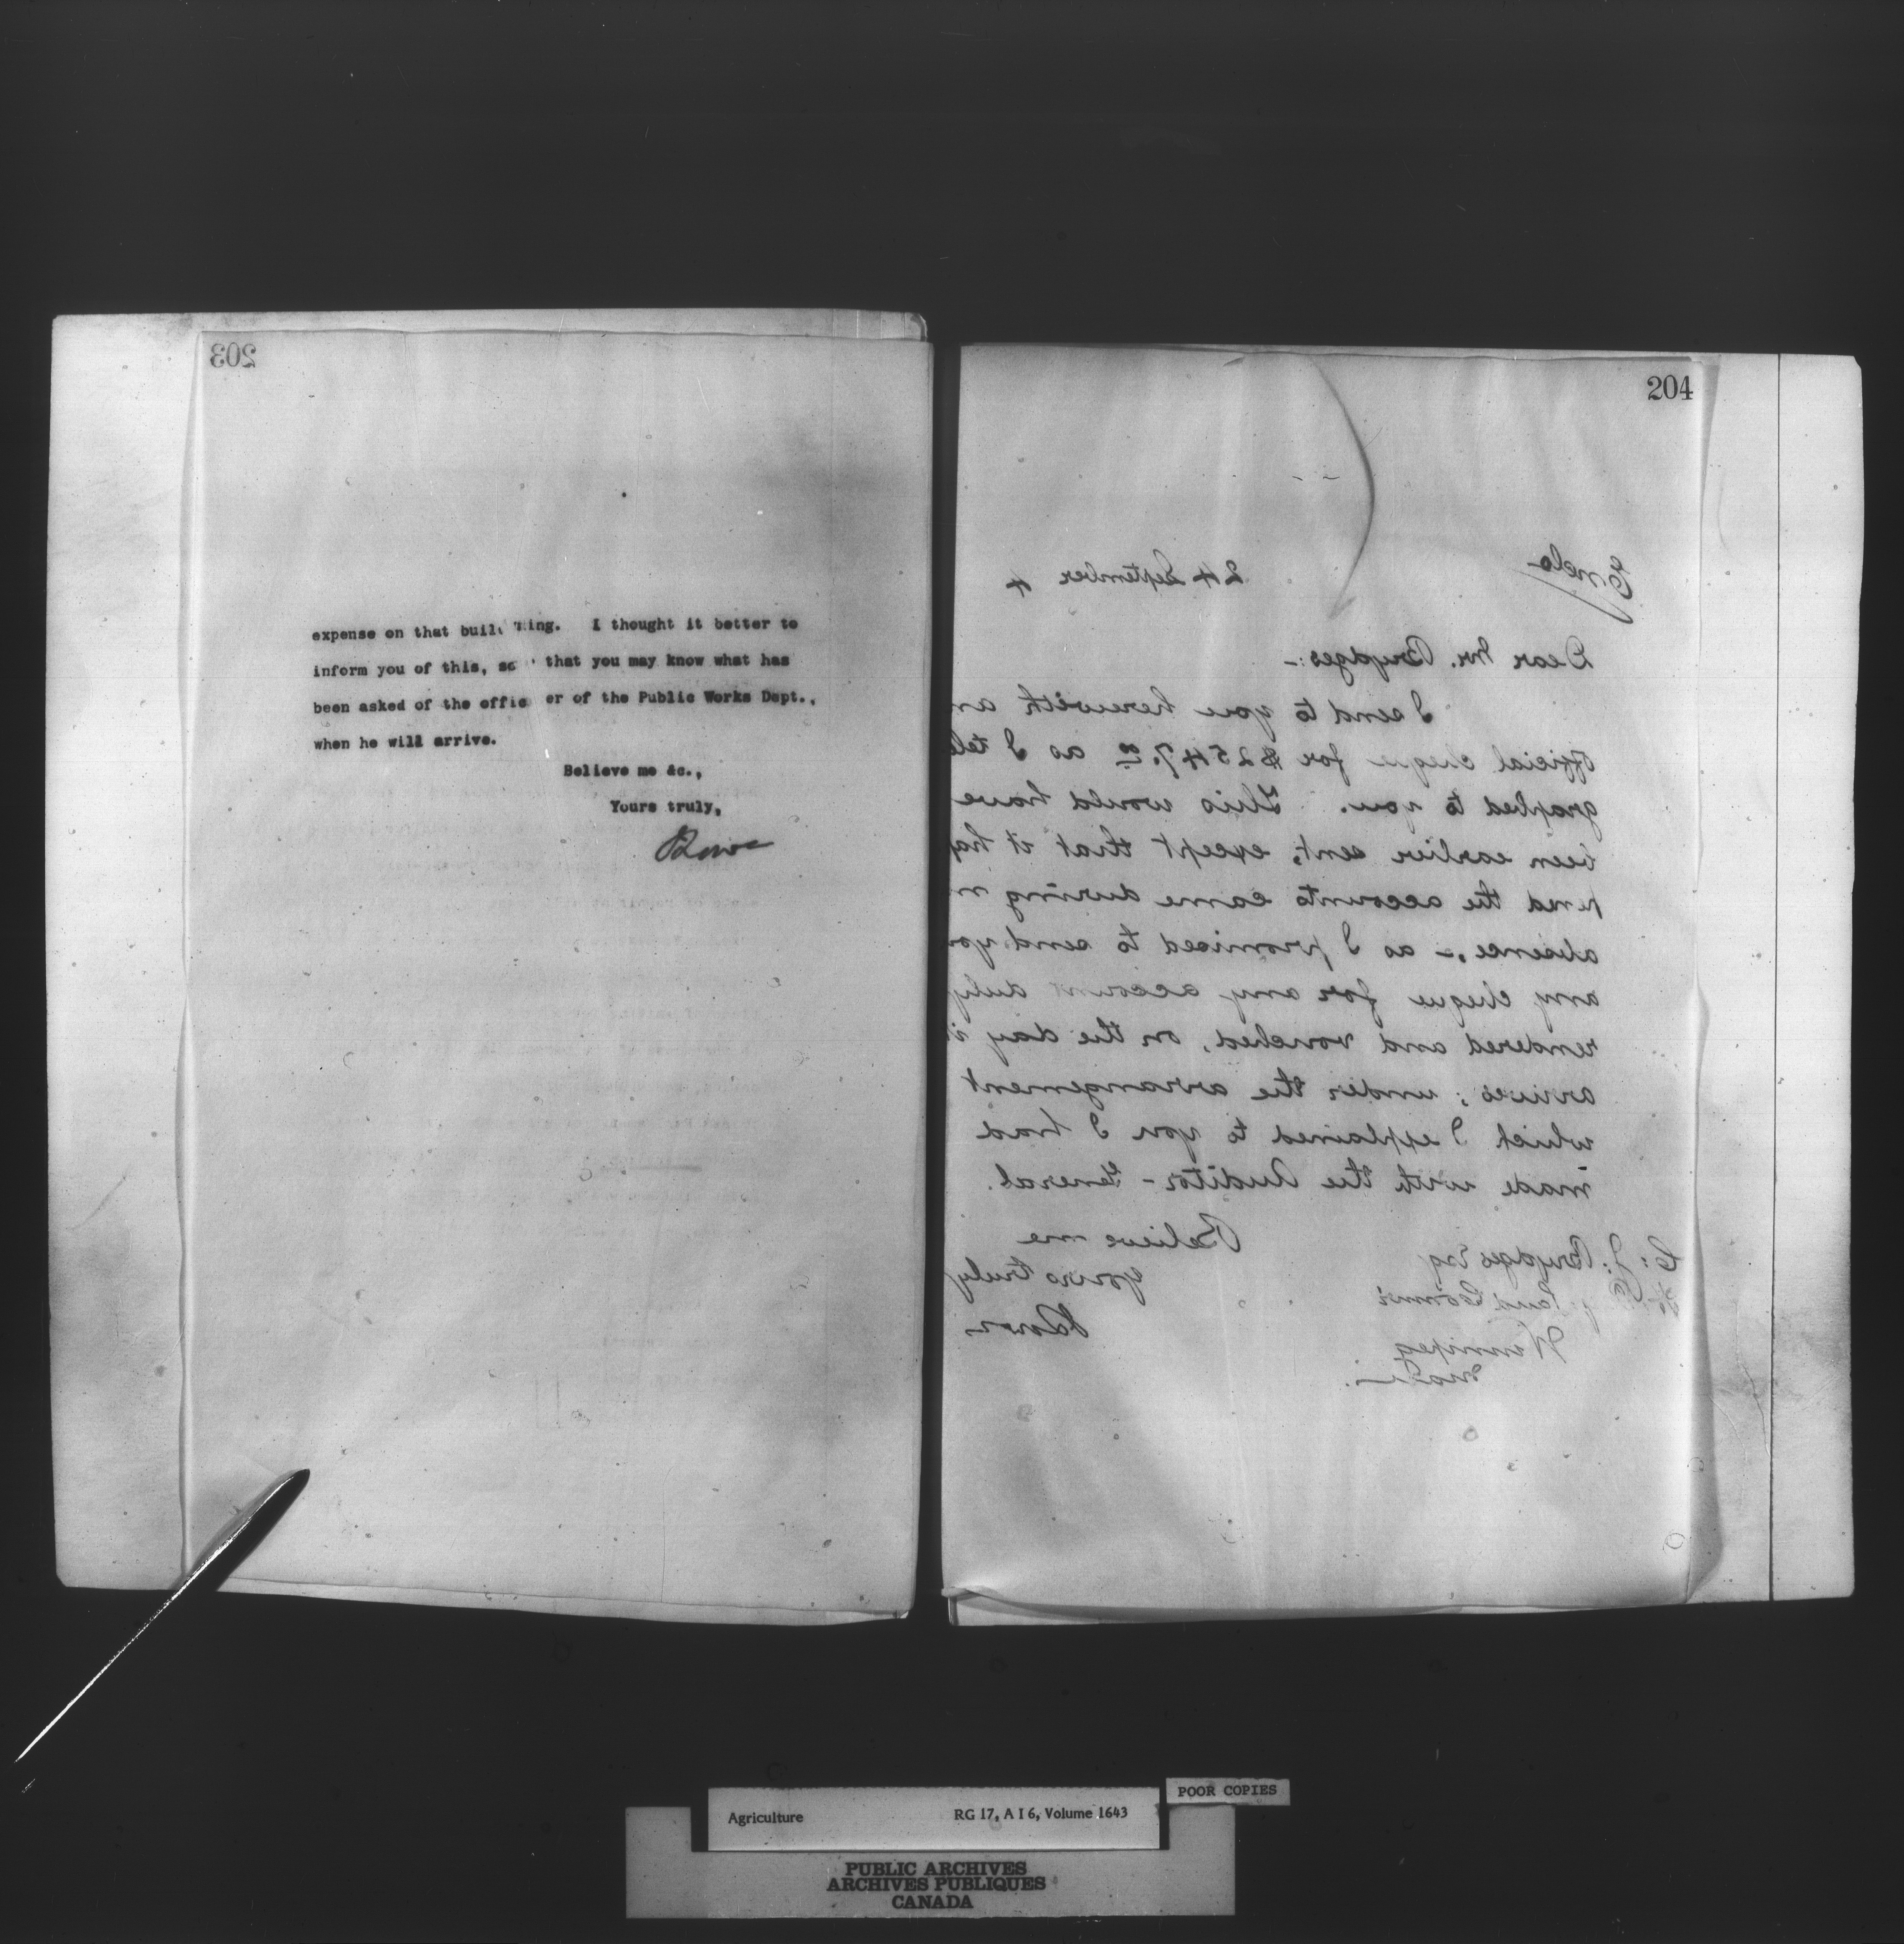 203
expense on that building. I thought it better to
inform you of this, so that you may know what has
been asked of the officer of the Public Works Dept.,
when he will arrive.
Believe me &c.,
Yours truly,
204
Enclo
24 September 4
Dear Mr. Brydges:-
I send to you herewith an
official cheque for $2547.00 as I tele
graphed to you. This would have
been earlier sent, except that it hap
pened the accounts came during m
absence, - as I promised to send you
my cheque for any account duly
rendered and vouched, on the day it
arrives; under the arrangement
which I explained to you I had
made with the Auditor-General.
Believe me
yours truly
C: J: Brydges Esq
Land Commr
Winnipeg
Man
POOR COPIES
Agriculture RG 17, A I 6, Volume 1643
PUBLIC ARCHIVES
ARCHIVES PUBLIQUES
CANADA